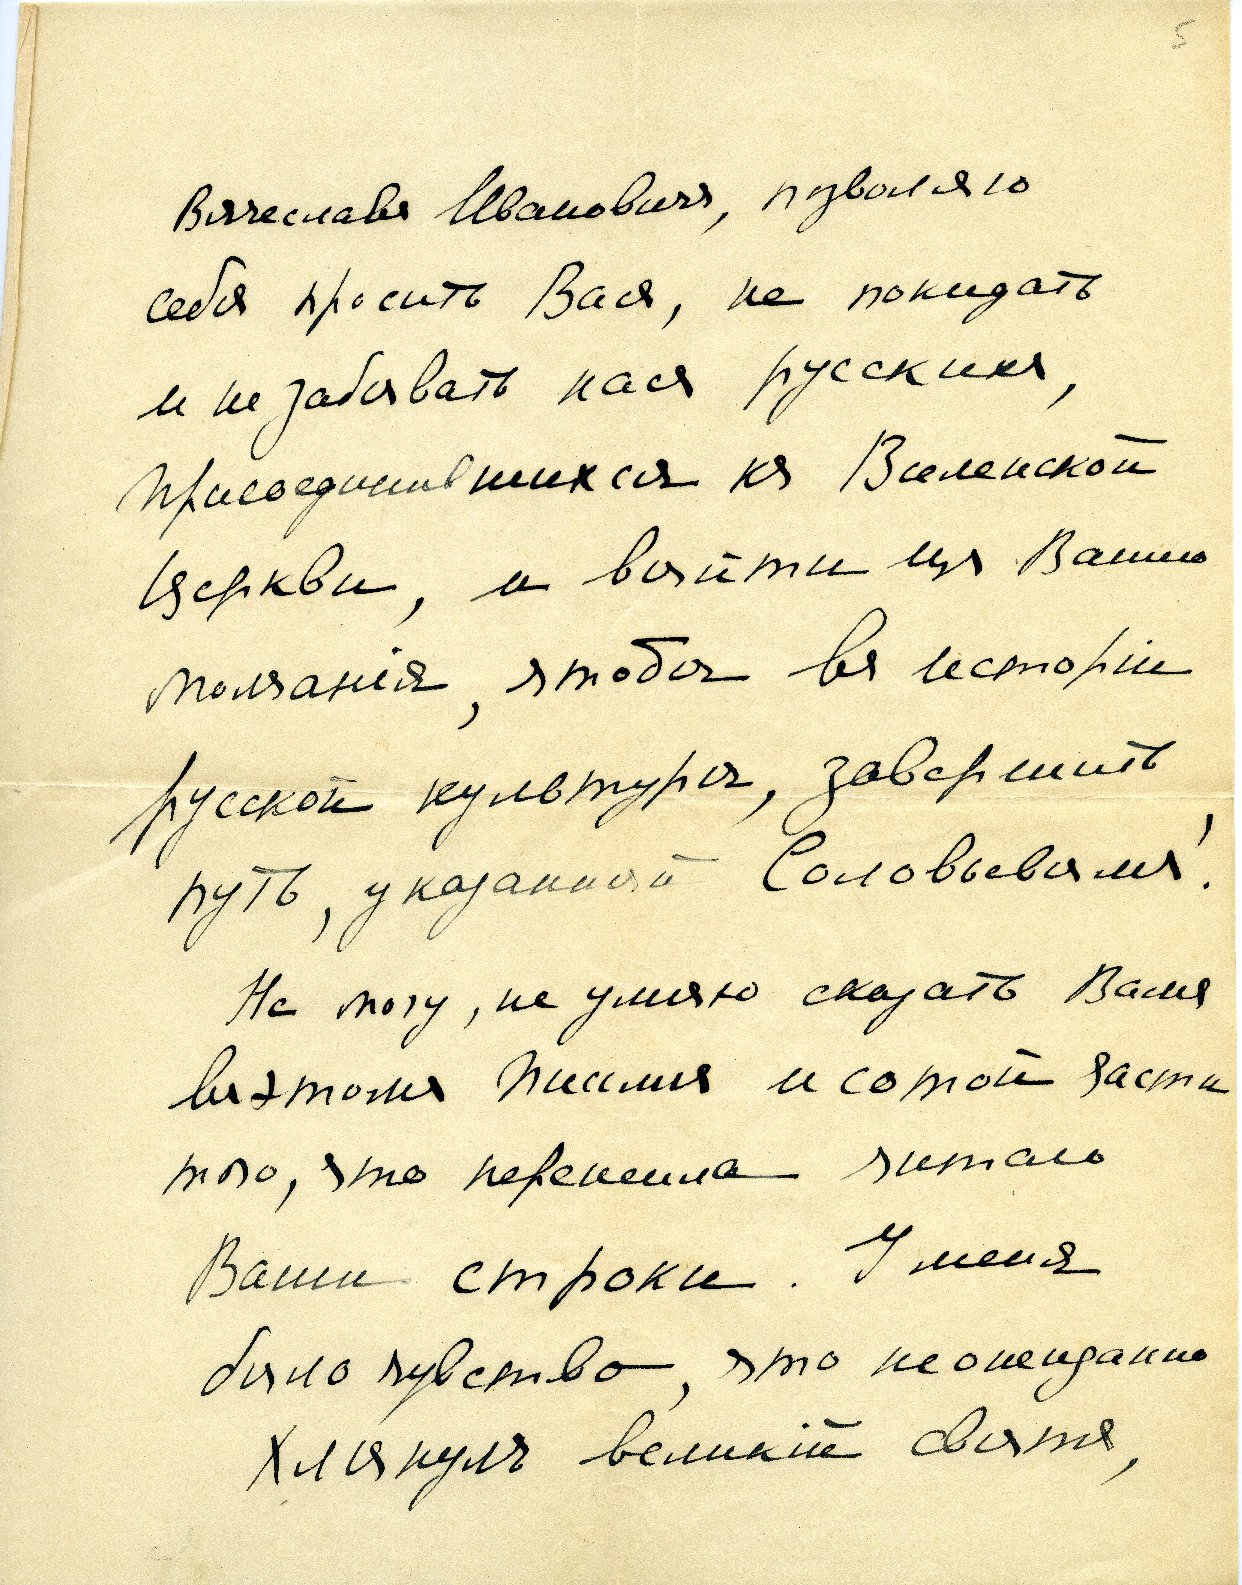 5
Вячеславъ Ивановичъ, позволяю
себѣ просить Васъ, не покидать
и не забывать насъ русскихъ,
присоединившихся къ Вселенской
Церкви, и выйти изъ Вашего
молчанія, чтобы въ исторіи
русской культуры, завершить
путь, указанный Соловьевымъ!
Не могу, не умѣю сказать Вамъ
въ этомъ письмѣ и сотой части
того, что пережила читая
Ваши строки. У меня
было чувство, что неожиданно
хлынулъ великій свѣтъ,